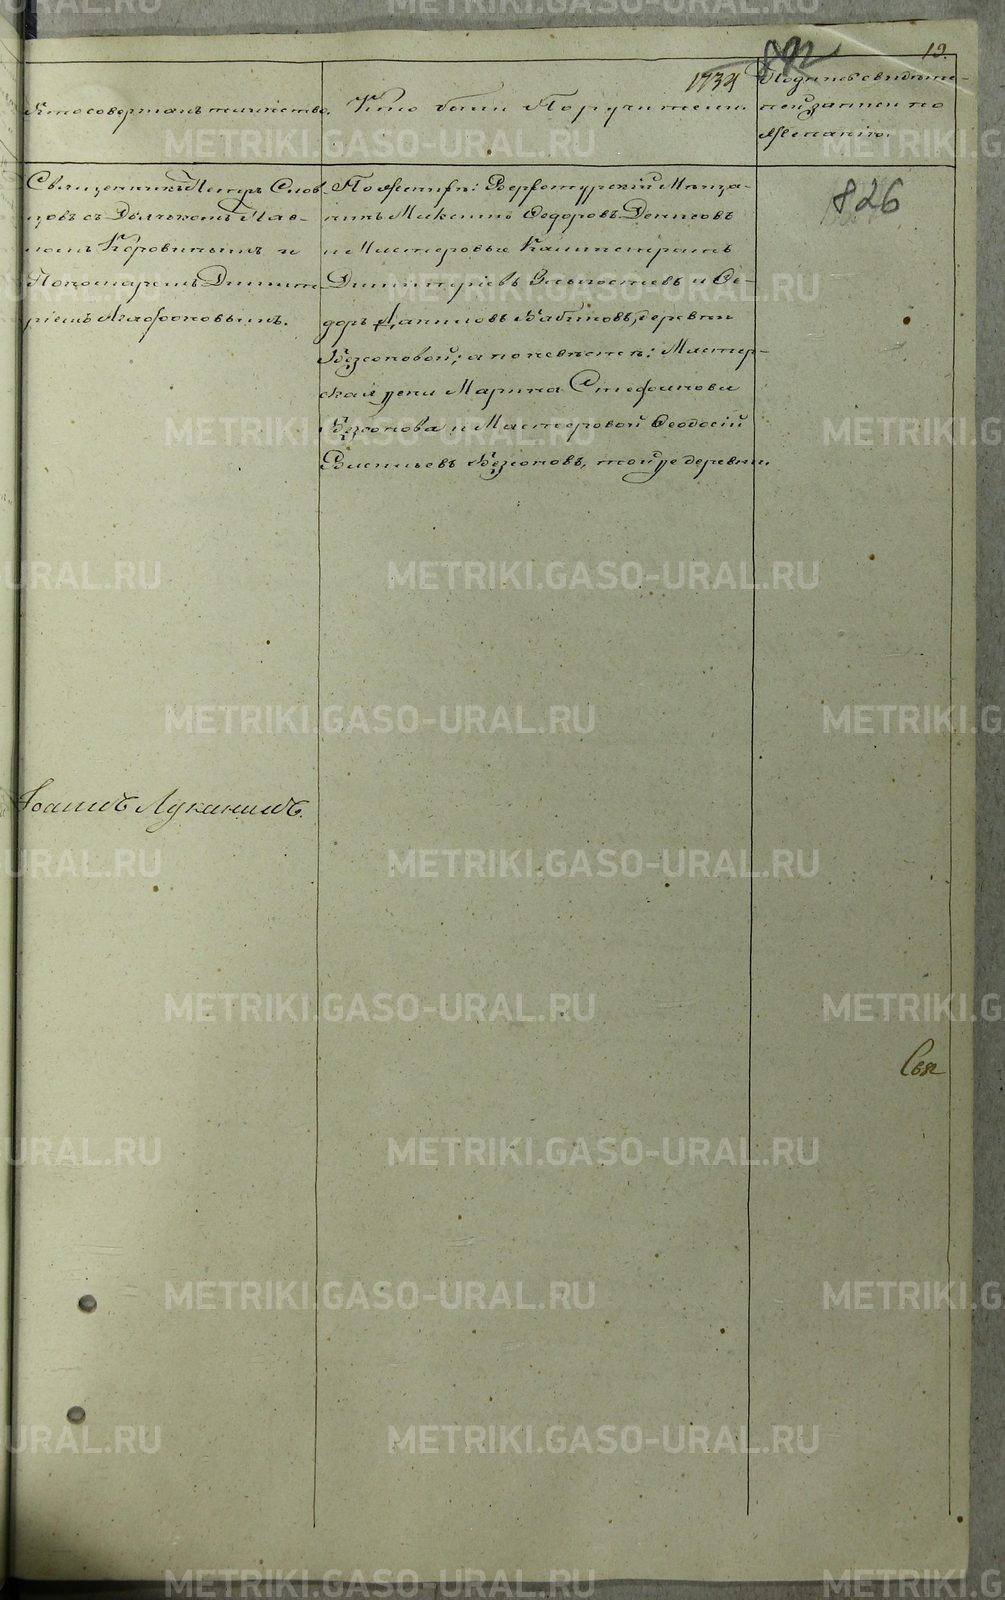 892
19.
1734
Кто совершалъ таинство.
Кто были Поручители.
Подпись свидѣте-
лей записи по
желанію.
Священникъ Петръ Слов-
цовъ съ Дьячкомъ Пав-
ломъ Коровинымъ и
Пономаремъ Димит-
ріемъ Агафоновымъ.
По женихѣ: Верхотурскій Мѣща-
нинъ Максимъ Ѳедоровъ Денисовъ
и Мастеровые Калистратъ
Димитріевъ и Ѳе-
доръ Даниловъ Бабиновъ, деревни
Безсоновой; а по невѣстѣ: Мастер-
ская жена Марина Стефанова
Безсонова и Мастеровой Ѳеодосій
Васильевъ Безсоновъ, той же деревни.
826
Іоаннъ Луканинъ.
Свя
METRIKI.GASO-URAL.RU